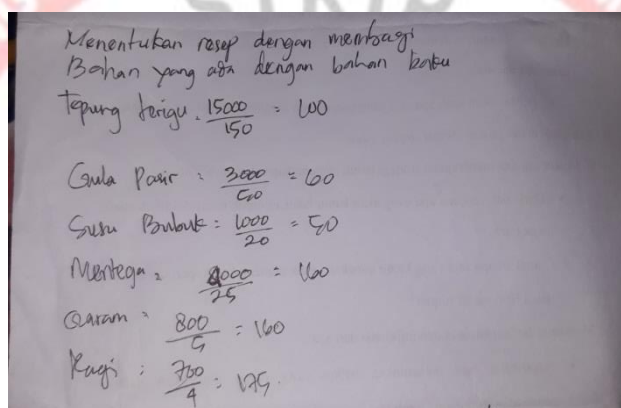 Menentukan resep dengan membagi
Bahan yang ada dengan bahan baku
Tepung terigu = 15000/150 = 100
Gula Pasir : 3000/50 = 60
Susu Bubuk = 1000/20 = 50
Mentega = 4000/25 = 160
Garam = 800/5 = 160
Ragi : 700/4 = 175.